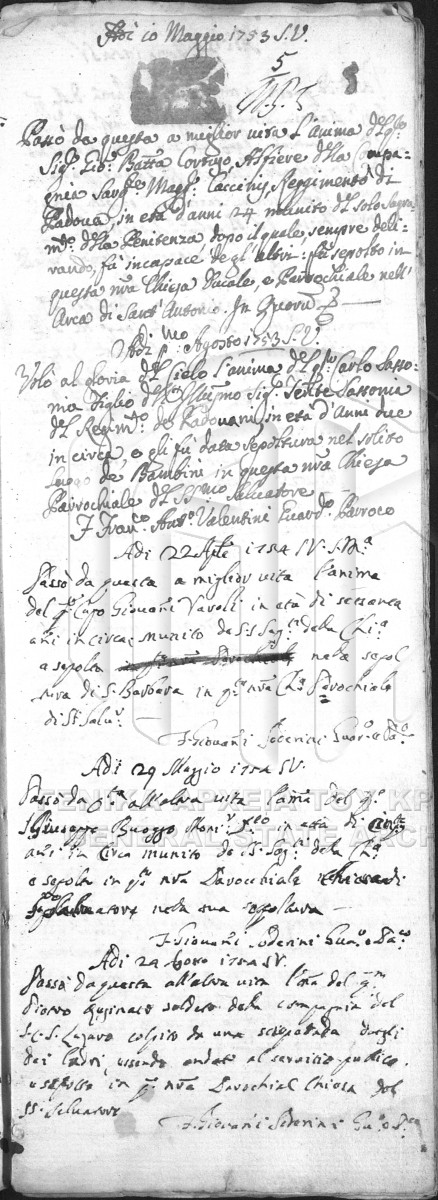 Adi 10 Maggio 1753 S.V.
5
8
Passò da questa a miglior vita l'anima del qm
Sigr Gio: Batta Alfiere della Compa=
gnia Sargte Maggr Reggimento di
Padova, in età d'anni 24 munito del solo Sagra
mto della Penitenza, dopo il quale, sempre deli=
rando, fù incapace degl'altri= fù sepolto in
questa nra Chiesa Ducale, e Parrochiale nell'
Arca di Sant'Antonio. In
Adi pmo Agosto 1753 S.V.
Volò al gloria del Cielo l'anima del qm Carlo Sasso=
nia Figlio dell' Illustrmo Sigr Tente Sassonia
del Regimto de Padovani, in età d'Anni due
in circa, e gli fù data sepoltura nel solito
luogo de Bambini in questa nra Chiesa
Parrochiale del Ssmo Salvatore
F Franco Anto Valentini Guardo Parroco
Adi 22 Aple 1754 S.V.
Passò da questa a miglior vita l'anima
del qm Capo Giovani Vavoli in età di sessanta
ani in circa, munito de SS Sagti della Chia
e sepolto nela sepol
tura di S. Barbara in qa nra Cha Parochiale
di St Salvr
F Giovani Soderini Guaro e
Adi 29 Maggio 1754 SV.
Passò da qta all'altra vita l'ama del qm
Giuseppe in età di
ani in circa munito de SS Sagti dela Cha
e sepolto in qa nra Parochiale chiesa di
Salvatore nela sua sepoltura
F Giovani Soderini Guaro e Paco
Adi 24 1754 SV.
Passò da questa all'altra vita l'ama del qm
Pietro soldato dela compagnia del
S. Lazaro colpito da una scopetada dagli
dei ladri, essendo andato al servitio publico.
e sepolto in qa nra Parochial Chiesa del
SS. Salvatore
F Giovani Soderini Guaro
ΓΕΝΙΚΑ ΑΡΧΕΙΑ ΤΟΥ ΚΡ
GENERAL STATE ARCH